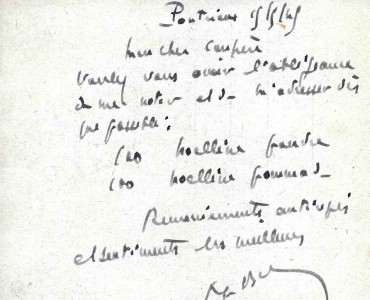 Pontrieux 15/5/45
Mon cher confrère
Veuillez vous avoir l'obligeance
de me noter et de m'adresser dès
que possible:
100 hoelline poudre
100 hoelline pommade
Remerciements anticipés
et sentiments les meilleurs